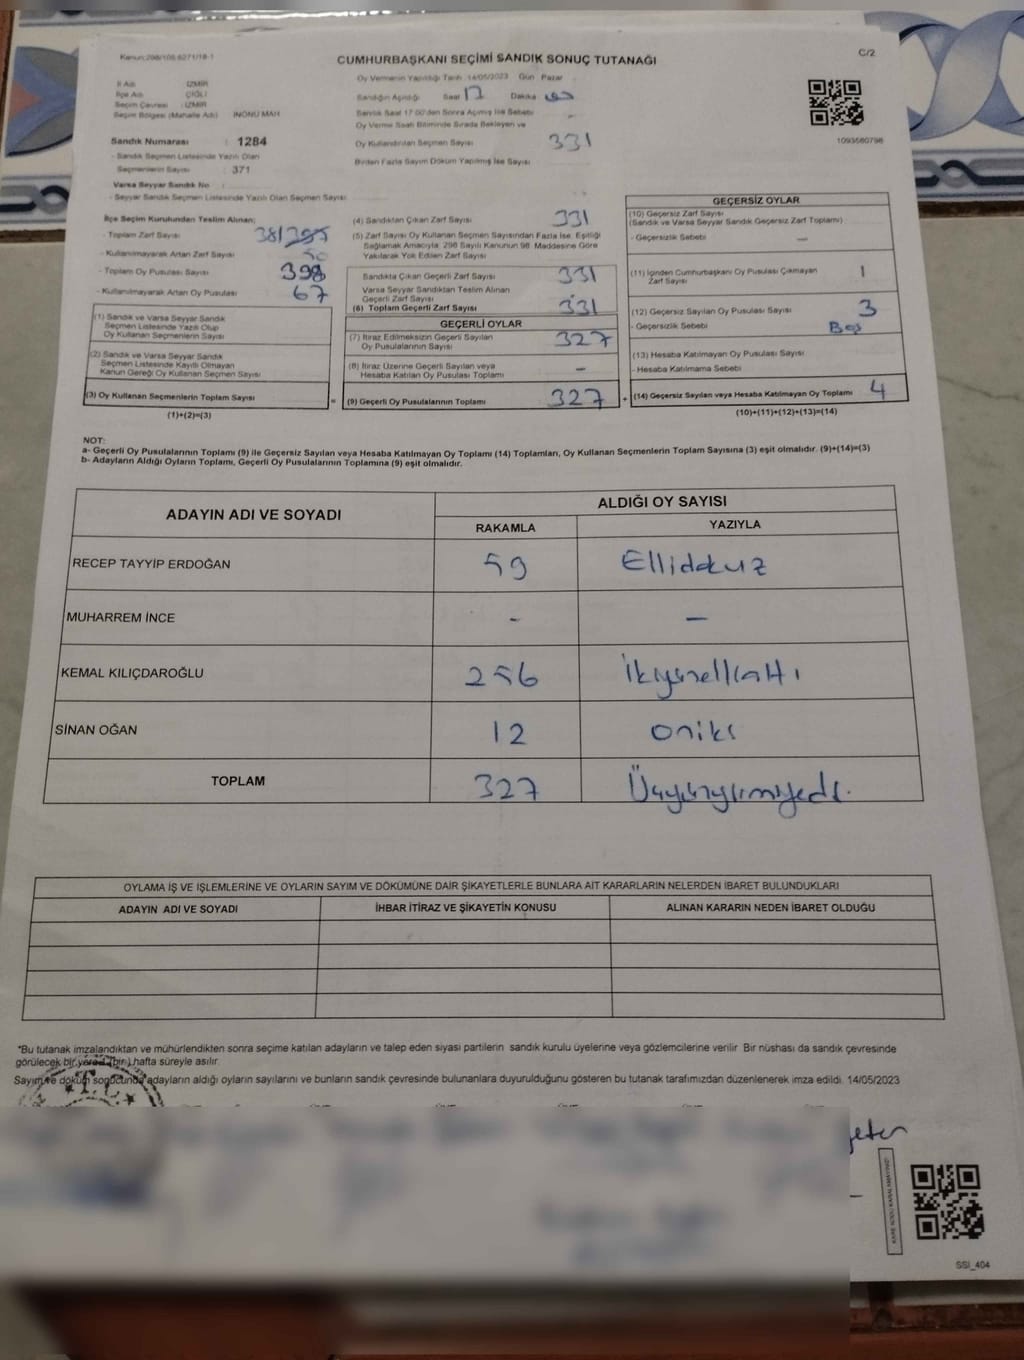 Kanun:298/105,6271/18-1
CUMHURBAŞKANI SEÇİMİ SANDIK SONUÇ TUTANAĞI
C/2
Oy Vermenin Yapıldığı Tarih :14/05/2023 Gün Pazar
İl Adı : İZMİR
İlçe Adı : ÇİĞLİ
Seçim Çevresi : İZMİR
Seçim Bölgesi (Mahalle Adı) İNÖNÜ MAH
Sandığın Açıldığı Saat 17 Dakika
Sandık Saat 17:00'den Sonra Açılmış İse Sebebi
Oy Verme Saati Bitiminde Sırada Bekleyen ve
Oy Kullandırılan Seçmen Sayısı 331
Birden Fazla Sayım Döküm Yapılmış İse Sayısı
1093560796
Sandık Numarası : 1284
- Sandık Seçmen Listesinde Yazılı Olan
Seçmenlerin Sayısı : 371
Varsa Seyyar Sandık No :
- Seyyar Sandık Seçmen Listesinde Yazılı Olan Seçmen Sayısı
İlçe Seçim Kurulundan Teslim Alınan;
- Toplam Zarf Sayısı 381
- Kullanılmayarak Artan Zarf Sayısı 50
- Toplam Oy Pusulası Sayısı 398
- Kullanılmayarak Artan Oy Pusulası 67
(1) Sandık ve Varsa Seyyar Sandık
Seçmen Listesinde Yazılı Olup
Oy Kullanan Seçmenlerin Sayısı
(2) Sandık ve Varsa Seyyar Sandık
Seçmen Listesinde Kayıtlı Olmayan
Kanun Gereği Oy Kullanan Seçmen Sayısı
(3) Oy Kullanan Seçmenlerin Toplam Sayısı
(1)+(2)=(3)
(4) Sandıktan Çıkan Zarf Sayısı 331
(5) Zarf Sayısı Oy Kullanan Seçmen Sayısından Fazla İse, Eşitliği
Sağlamak Amacıyla; 298 Sayılı Kanunun 98. Maddesine Göre
Yakılarak Yok Edilen Zarf Sayısı
Sandıkta Çıkan Geçerli Zarf Sayısı 331
Varsa Seyyar Sandıktan Teslim Alınan
Geçerli Zarf Sayısı -
(6) Toplam Geçerli Zarf Sayısı 331
GEÇERLİ OYLAR
(7) İtiraz Edilmeksizin Geçerli Sayılan
Oy Pusulalarının Sayısı 327
(8) İtiraz Üzerine Geçerli Sayılan veya
Hesaba Katılan Oy Pusulası Toplamı -
= (9) Geçerli Oy Pusulalarının Toplamı 327
GEÇERSİZ OYLAR
(10) Geçersiz Zarf Sayısı
(Sandık ve Varsa Seyyar Sandık Geçersiz Zarf Toplamı)
- Geçersizlik Sebebi -
(11) İçinden Cumhurbaşkanı Oy Pusulası Çıkmayan
Zarf Sayısı 1
(12) Geçersiz Sayılan Oy Pusulası Sayısı 3
- Geçersizlik Sebebi Boş
(13) Hesaba Katılmayan Oy Pusulası Sayısı
- Hesaba Katılmama Sebebi
+ (14) Geçersiz Sayılan veya Hesaba Katılmayan Oy Toplamı 4
(10)+(11)+(12)+(13)=(14)
NOT:
a- Geçerli Oy Pusulalarının Toplamı (9) ile Geçersiz Sayılan veya Hesaba Katılmayan Oy Toplamı (14) Toplamları, Oy Kullanan Seçmenlerin Toplam Sayısına (3) eşit olmalıdır. (9)+(14)=(3)
b- Adayların Aldığı Oyların Toplamı, Geçerli Oy Pusulalarının Toplamına (9) eşit olmalıdır.
ADAYIN ADI VE SOYADI
ALDIĞI OY SAYISI
RAKAMLA YAZIYLA
RECEP TAYYİP ERDOĞAN 59 Ellidokuz
MUHARREM İNCE - -
KEMAL KILIÇDAROĞLU 256 İkiyüzellialtı
SİNAN OĞAN 12 oniki
TOPLAM 327 Üçyüzyirmiyedi.
OYLAMA İŞ VE İŞLEMLERİNE VE OYLARIN SAYIM VE DÖKÜMÜNE DAİR ŞİKAYETLERLE BUNLARA AİT KARARLARIN NELERDEN İBARET BULUNDUKLARI
ADAYIN ADI VE SOYADI İHBAR İTİRAZ VE ŞİKAYETİN KONUSU ALINAN KARARIN NEDEN İBARET OLDUĞU
*Bu tutanak imzalandıktan ve mühürlendikten sonra seçime katılan adayların ve talep eden siyasi partilerin sandık kurulu üyelerine veya gözlemcilerine verilir. Bir nüshası da sandık çevresinde
görülecek bir yere 1 (bir) hafta süreyle asılır.
Sayım ve döküm sonucunda adayların aldığı oyların sayılarını ve bunların sandık çevresinde bulunanlara duyurulduğunu gösteren bu tutanak tarafımızdan düzenlenerek imza edildi. 14/05/2023
T.C.
KARE KODU KARALAMAYINIZ!
SSİ_404